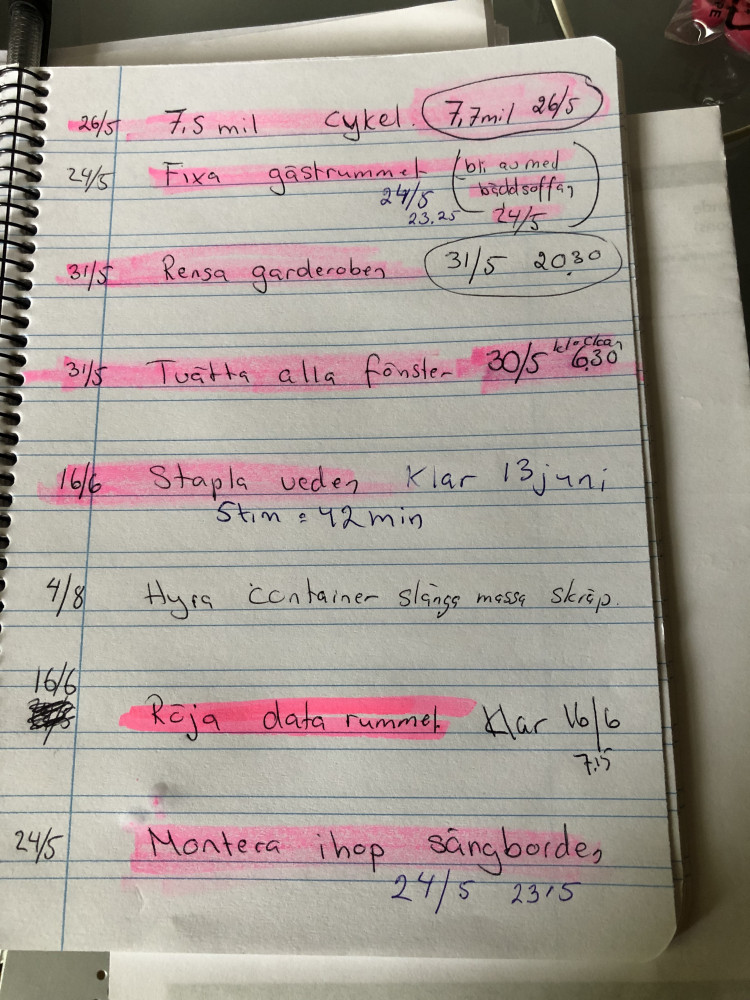 26/5 7,5 mil cykel. 7,7mil 26/5
24/5 Fixa gästrummet (bli av med
24/5 bäddsoffan
23.25 24/5)
31/5 Rensa garderoben 31/5 2030
31/5 Tvätta alla fönster 30/5 klockan 630
16/6 Stapla veden Klar 13 juni
5tim 42min
4/8 Hyra container slänga massa skräp.
16/6
Röja data rummet Klar 16/6
7.15
24/5 Montera ihop sängborden
24/5 2315